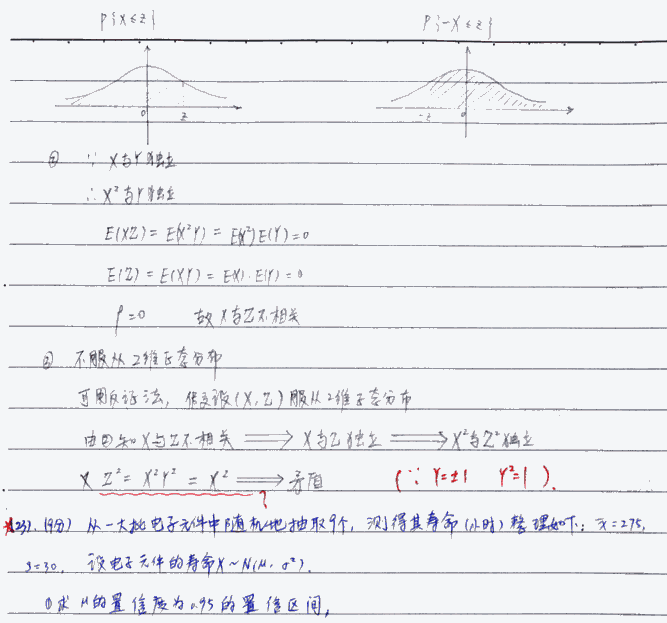 P{X≤z} P{-X≤z}
0 z -z 0
② ∵ X与Y独立
∴ X²与Y独立
E(XZ) = E(X²Y) = E(X²)E(Y) = 0
E(Z) = E(XY) = E(X)·E(Y) = 0
ρ=0 故X与Z不相关
③ 不服从2维正态分布
可用反证法，假设(X,Z)服从2维正态分布
由②知X与Z不相关 ⟹ X与Z独立 ⟹ X²与Z²独立
又 Z² = X²Y² = X² ⟹ 矛盾 (∵ Y=±1 Y²=1).
?
*(23). (9分) 从一大批电子元件中随机地抽取9个, 测得其寿命(小时)整理如下: x̄=275,
s=30. 设电子元件的寿命X~N(μ,σ²).
①求μ的置信度为0.95的置信区间,